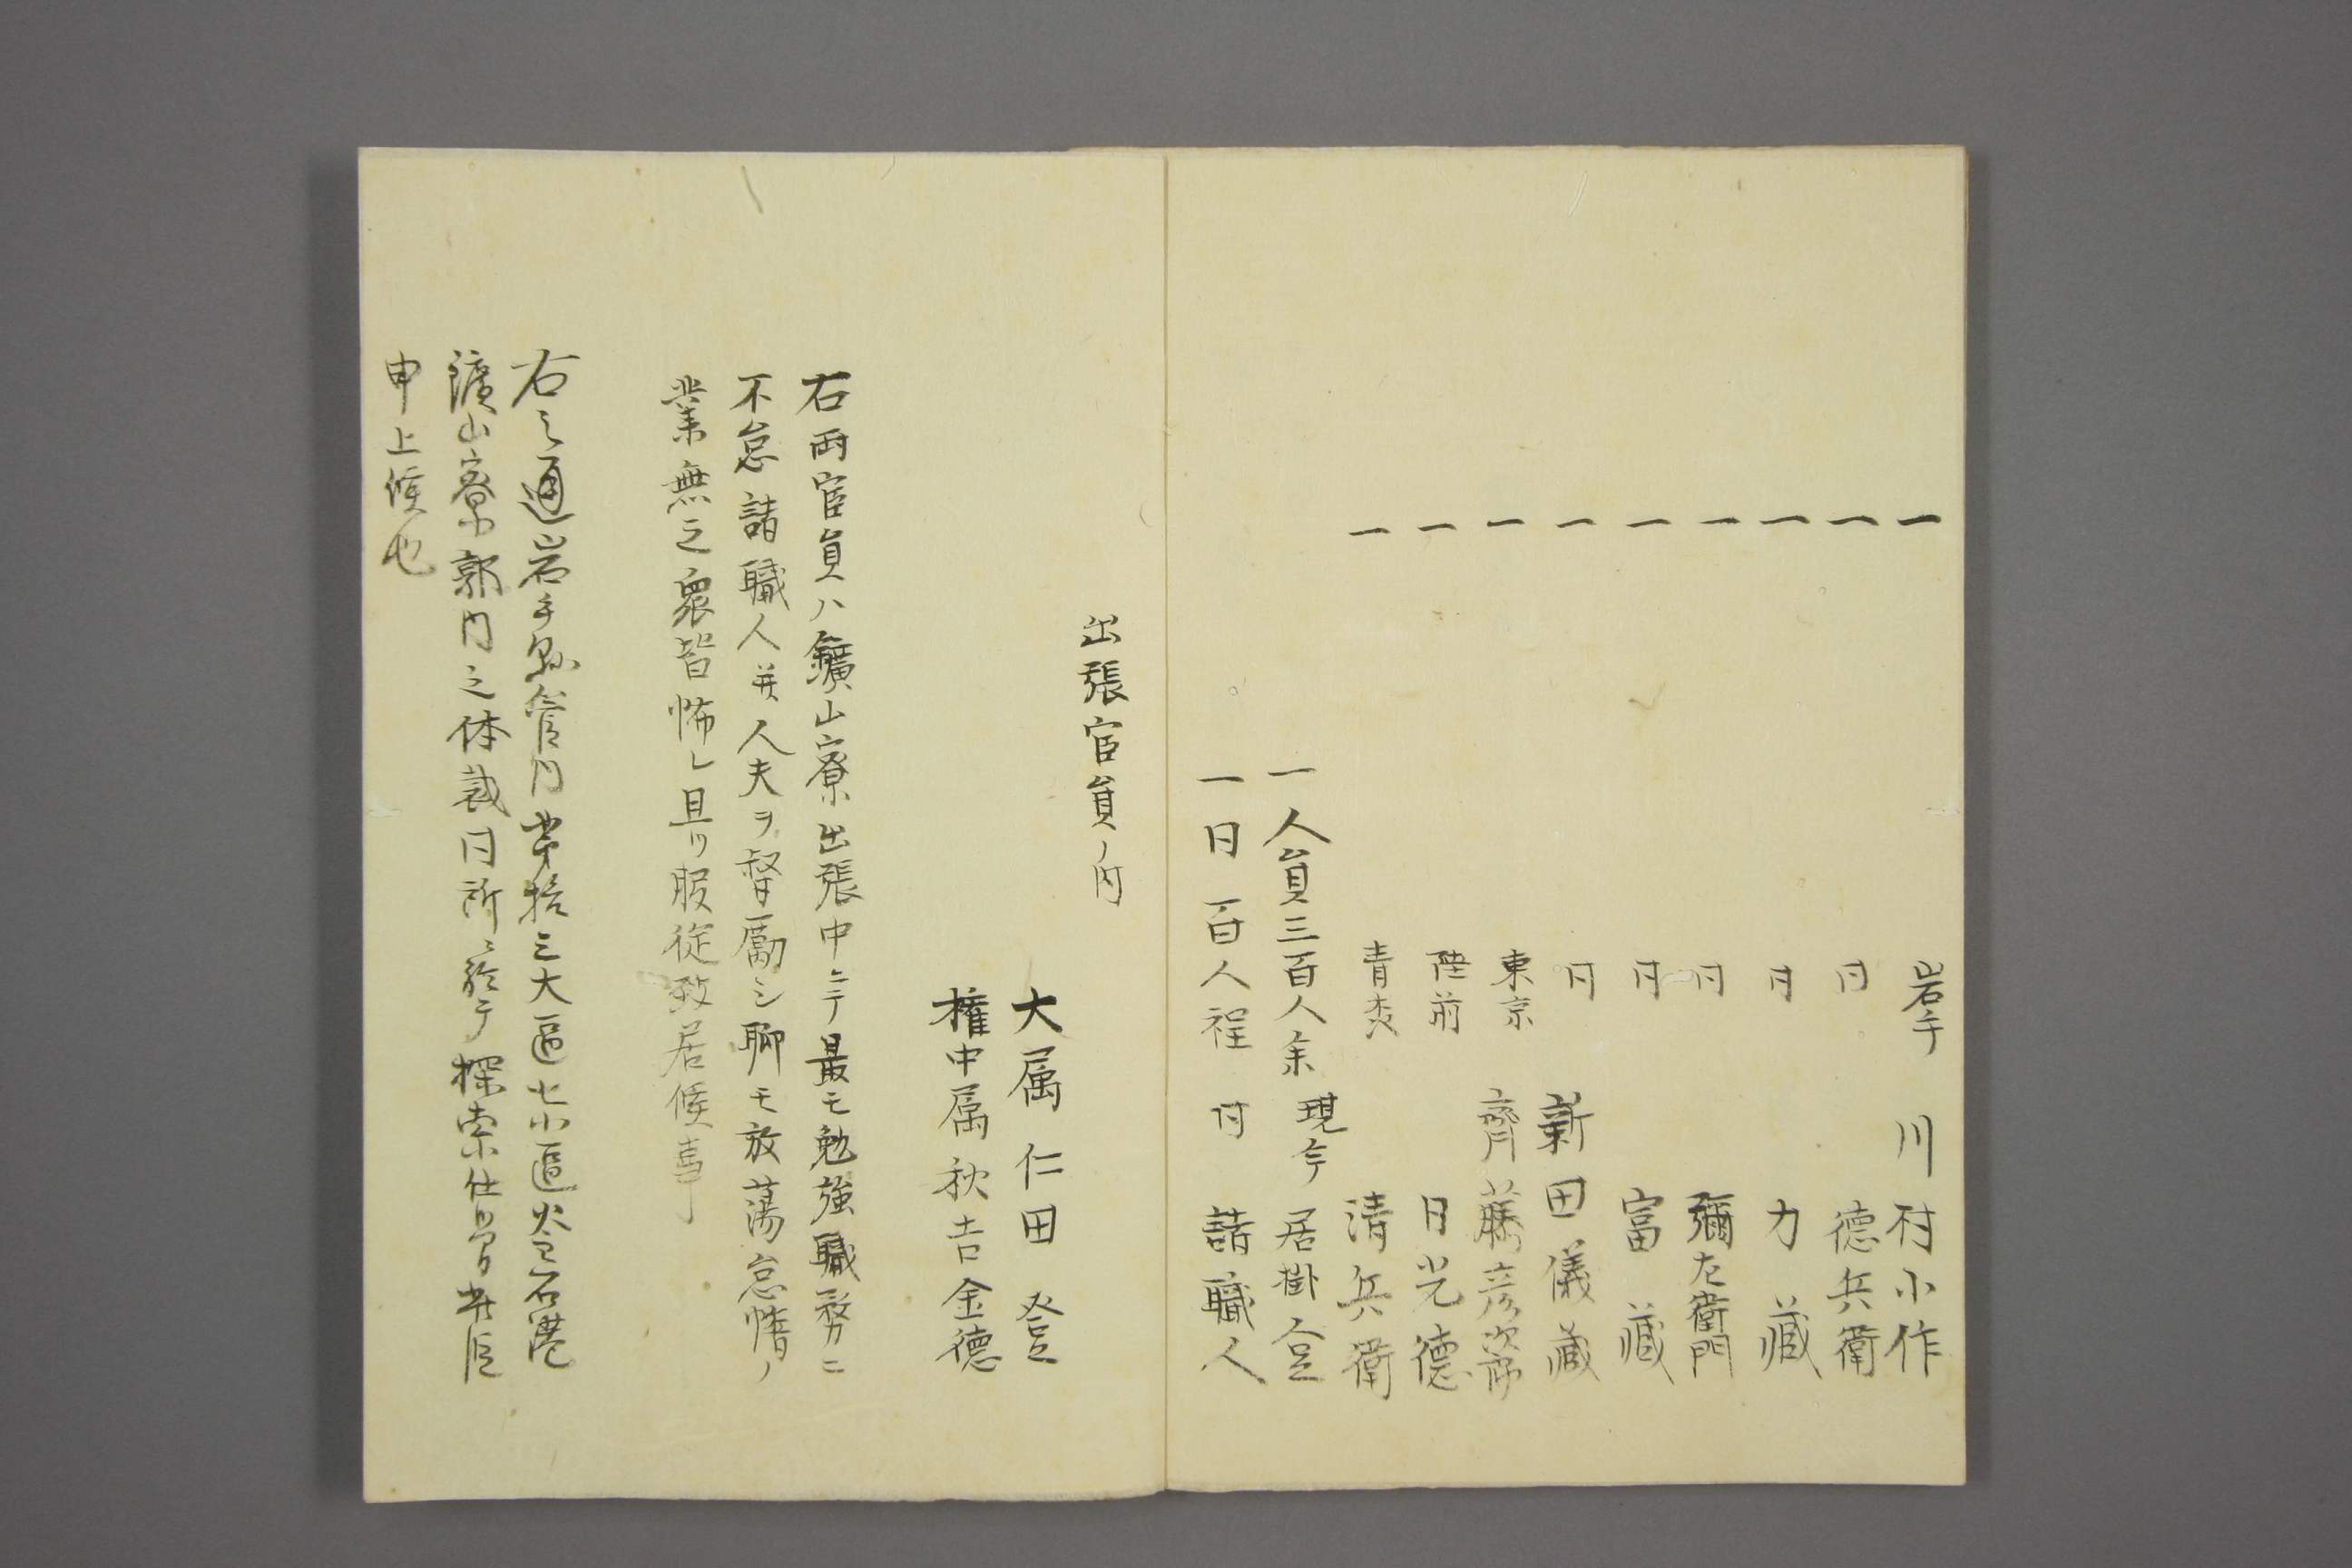 一　岩手　川村小作
一　同　徳兵衛
一　同　力藏
一　同　彌左衛門
一　同　富藏
一　同　新田儀藏
一　東京　齊藤彦次郎
一　陸前　日光德
一　青森　清兵衛
一人員三百人余　現今　居掛合
一日　百人程　同　諸職人
出張官員ノ内
大属仁田登
権中属秋吉金德
右両官員ハ鑛山寮出張中ニテ最モ勉強職務ニ
不怠諸職人并人夫ヲ督励シ聊モ放蕩怠惰ノ
業無之衆皆怖レ且ツ服從致居候事
右之通岩手縣管内第拾三大區七小區釜石港
鑛山寮郭内之体裁同所ニ於テ探索仕候
申上候也